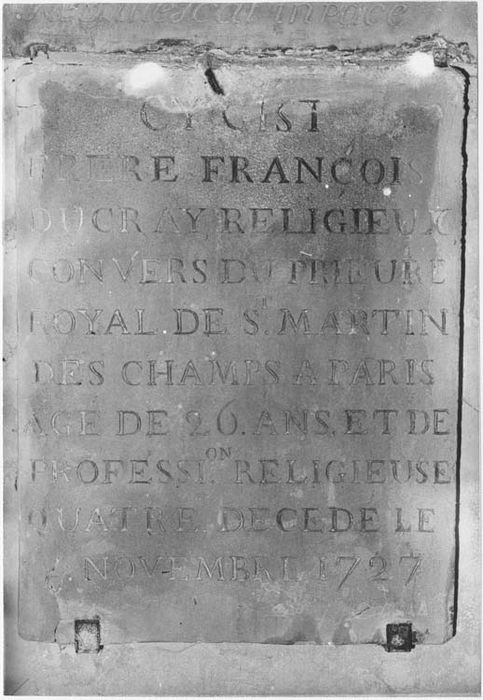 Requiescat in pace
CY GIST
FRERE FRANÇOIS
DUCRAY RELIGIEUX
CONVERS DU PRIEURE
ROYAL DE S.T MARTIN
DES CHAMPS A PARIS
AGE DE 26. ANS, ET DE
PROFESSI.ON RELIGIEUSE
QUATRE DECEDÉ LE
NOVEMBRE 1727